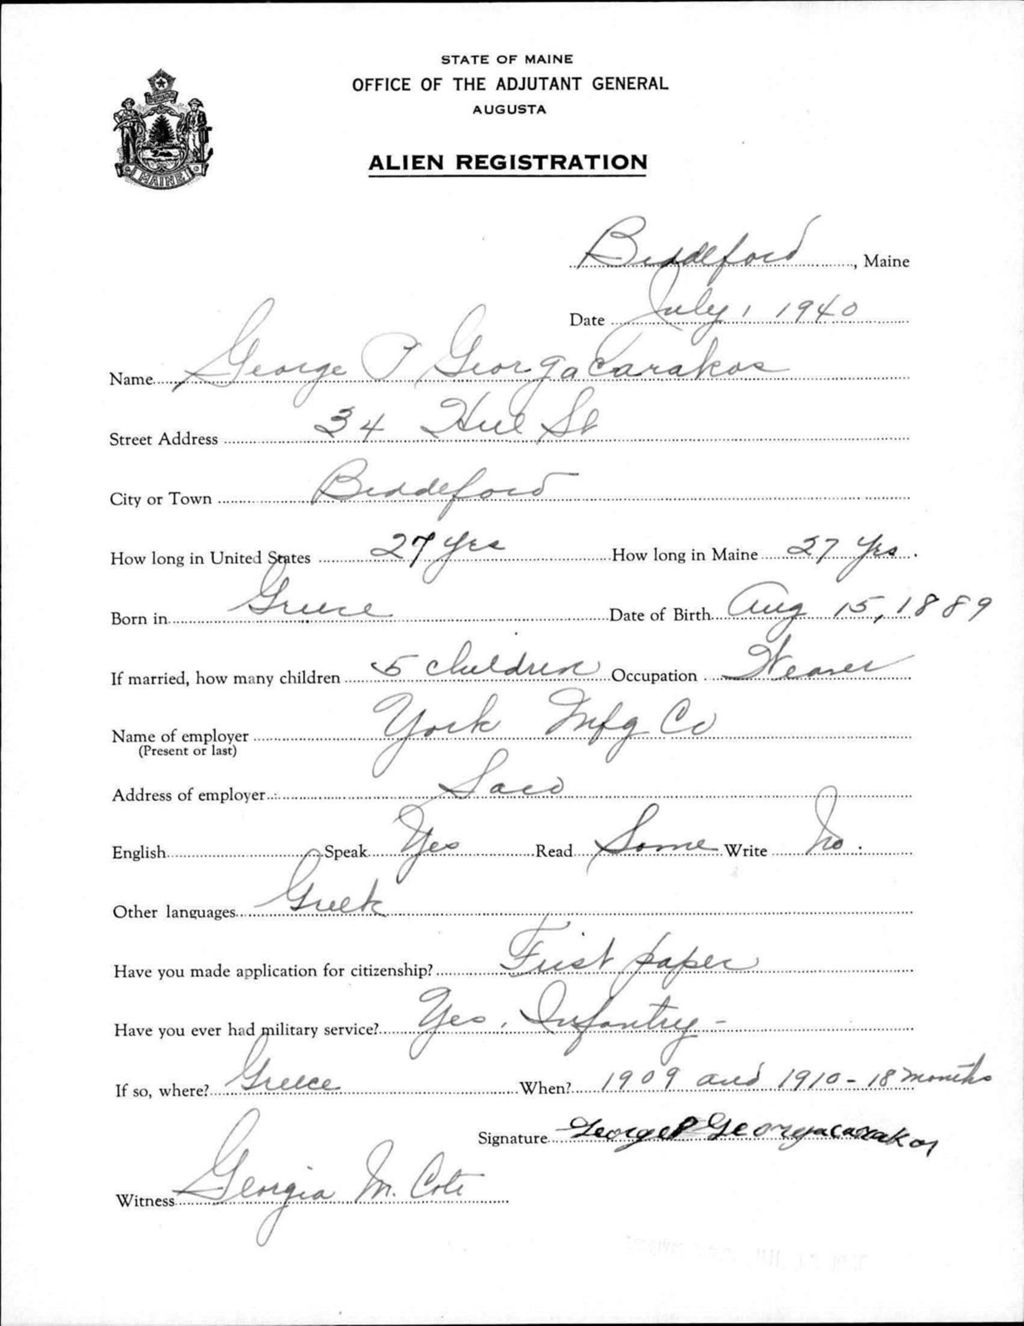 STATE OF MAINE
OFFICE OF THE ADJUTANT GENERAL
AUGUSTA
ALIEN REGISTRATION
MAINE
Biddeford, Maine
Date July 1 1940
Name George P Georgacarakos
Street Address 34 Hill St
City or Town Biddeford
How long in United States 27 Yrs How long in Maine 27 Yrs.
Born in Greece Date of Birth Aug 15, 1889
If married, how many children 5 children Occupation Weaver
Name of employer York Mfg Co
(Present or last)
Address of employer Saco
English Speak Yes Read Some Write No.
Other languages Greek
Have you made application for citizenship? First paper
Have you ever had military service? Yes. Infantry -
If so, where? Greece When? 1909 and 1910 - 18 months
Signature George P Georgacarakos
Witness Georgia M. Cote